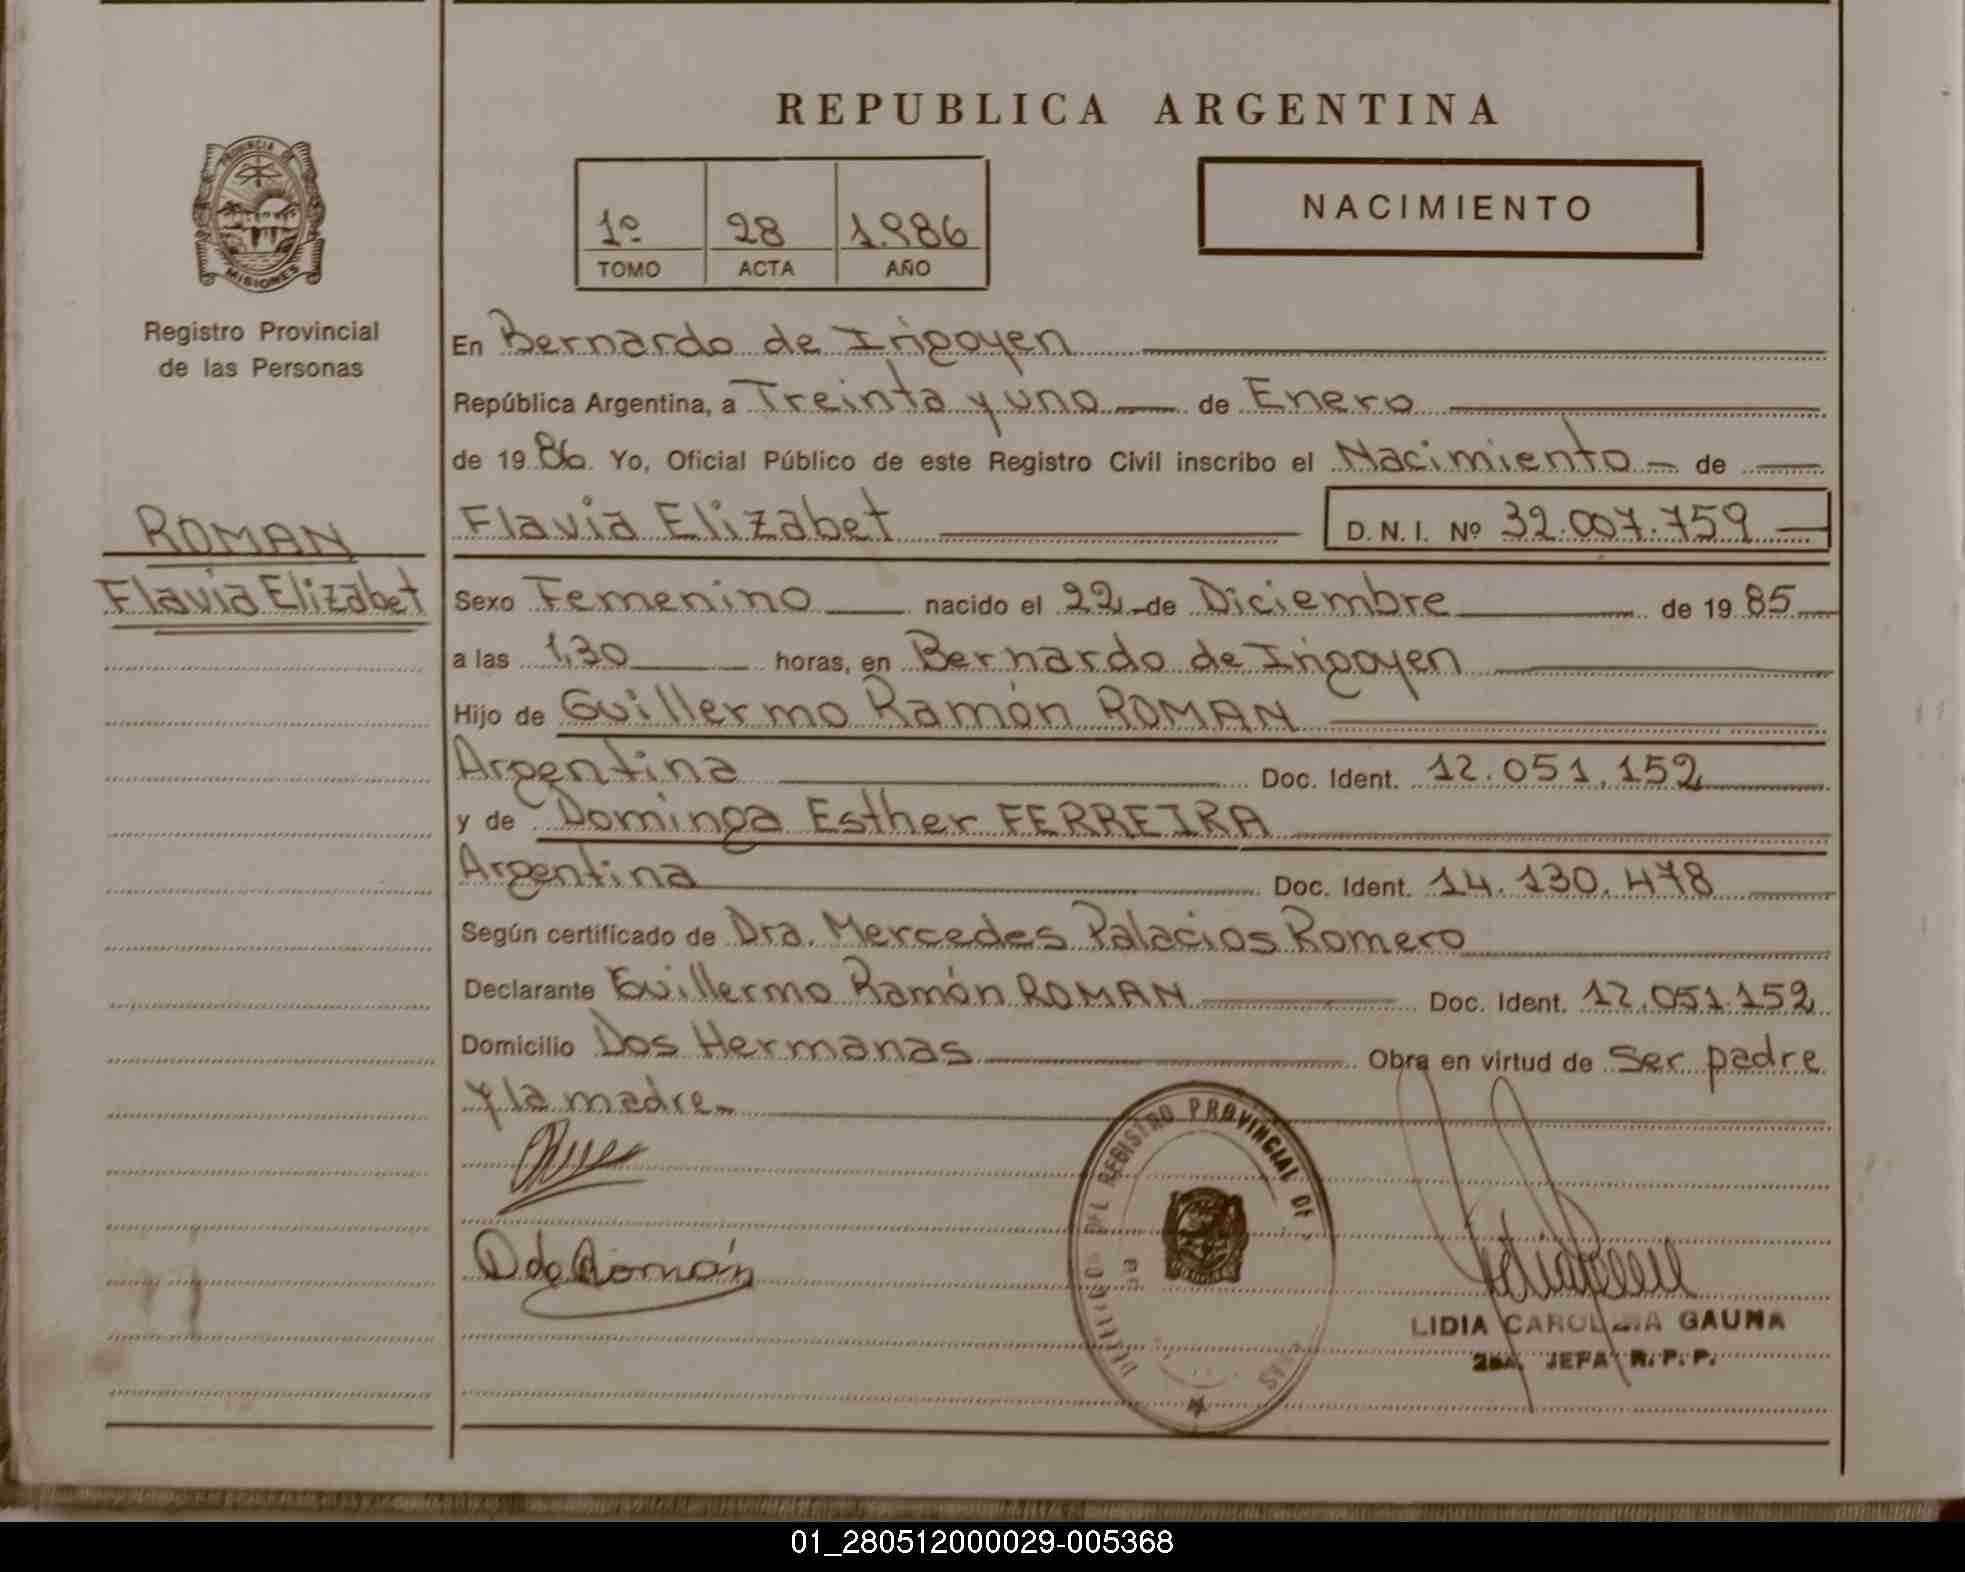 REPUBLICA ARGENTINA
PROVINCIA DE
MISIONES
Registro Provincial
de las Personas
1º 28 1.986
TOMO ACTA AÑO
NACIMIENTO
En Bernardo de Irigoyen
República Argentina, a Treinta y uno de Enero
de 19 86 Yo, Oficial Público de este Registro Civil inscribo el Nacimiento de
Flavia Elizabet D.N.I. Nº 32.007.759
ROMAN
Flavia Elizabet
Sexo Femenino nacido el 22 de Diciembre de 19 85
a las 1,30 horas, en Bernardo de Irigoyen
Hijo de Guillermo Ramón ROMAN
Argentina Doc. Ident. 12.051.152
y de Dominga Esther FERREIRA
Argentina Doc. Ident. 14.130.478
Según certificado de Dra. Mercedes Palacios Romero
Declarante Guillermo Ramón ROMAN Doc. Ident. 12.051.152
Domicilio Dos Hermanas Obra en virtud de Ser padre
y la madre
D de Román
DEL REGISTRO PROVINCIAL DE
LIDIA GAUNA
JEFA R.P.P.
01_280512000029-005368